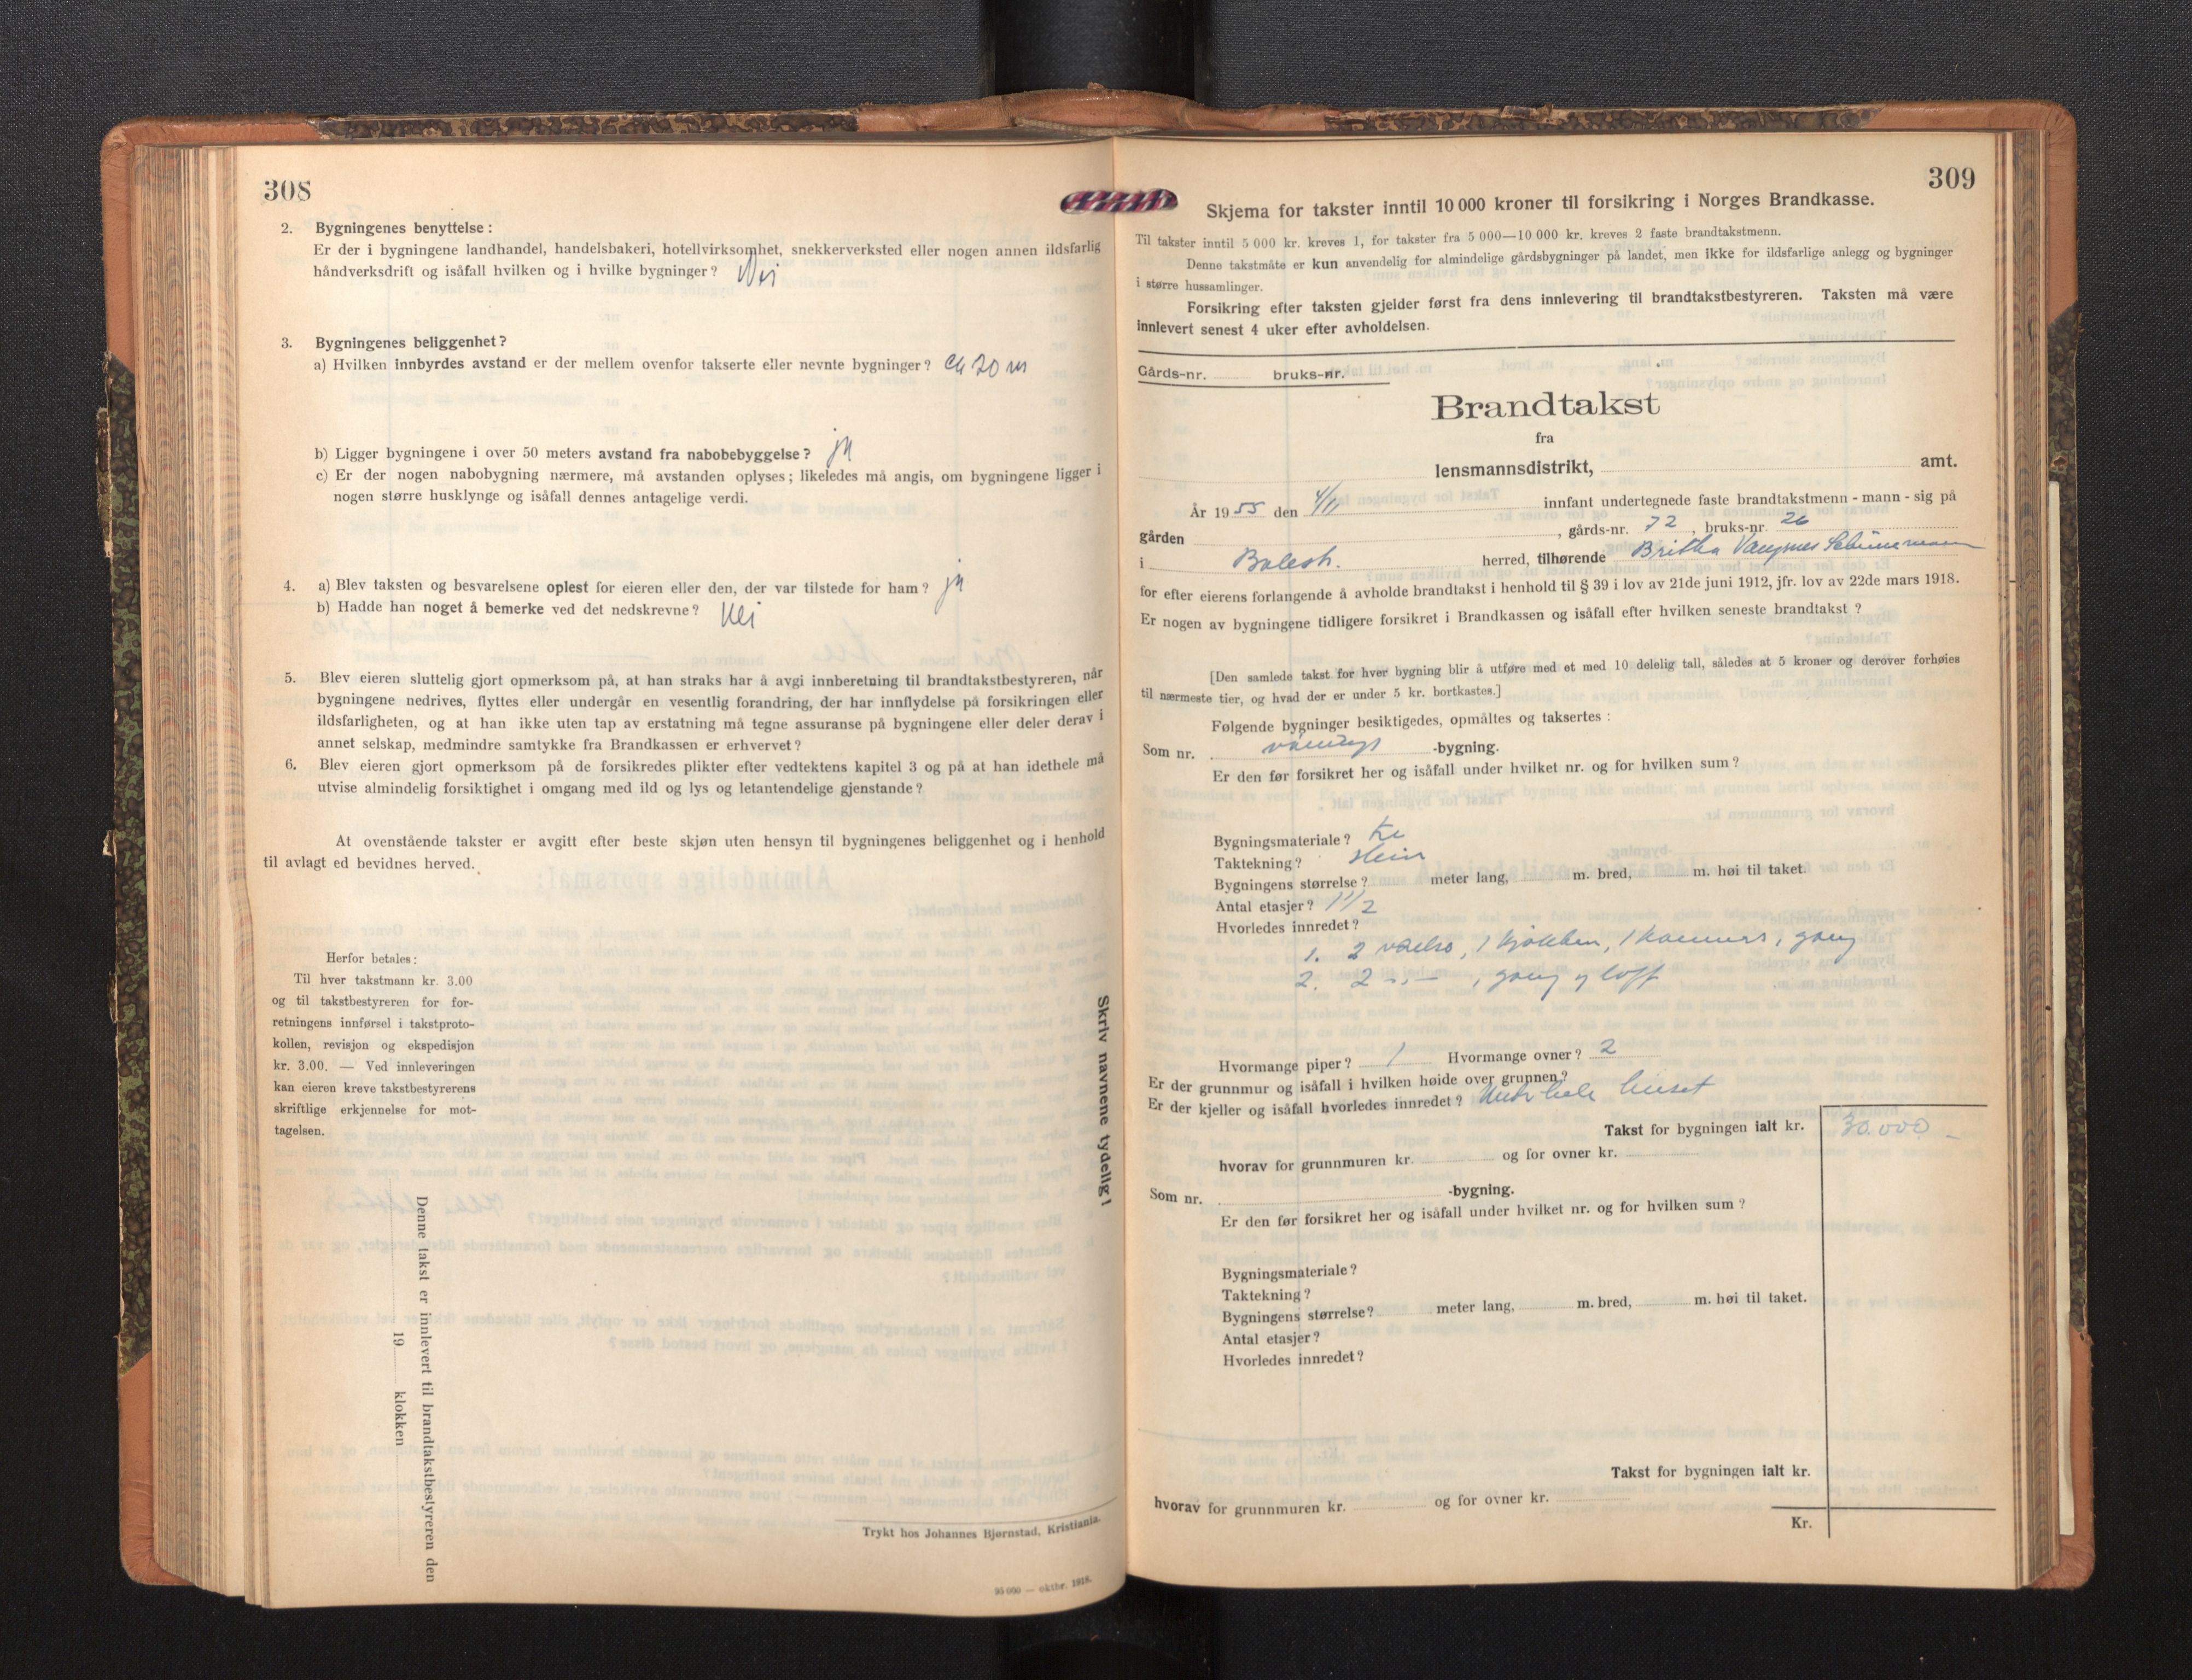 308
2. Bygningenes benyttelse:
Er der i bygningene landhandel, handelsbakeri, hotellvirksomhet, snekkerverksted eller nogen annen ildsfarlig
håndverksdrift og isåfall hvilken og i hvilke bygninger? Nei
3. Bygningenes beliggenhet?
a) Hvilken innbyrdes avstand er der mellem ovenfor takserte eller nevnte bygninger? ca 20 m
b) Ligger bygningene i over 50 meters avstand fra nabobebyggelse? ja
c) Er der nogen nabobygning nærmere, må avstanden oplyses; likeledes må angis, om bygningene ligger i
nogen større husklynge og isåfall dennes antagelige verdi.
4. a) Blev taksten og besvarelsene oplest for eieren eller den, der var tilstede for ham? ja
b) Hadde han noget å bemerke ved det nedskrevne? Nei
5. Blev eieren sluttelig gjort opmerksom på, at han straks har å avgi innberetning til brandtakstbestyreren, når
bygningene nedrives, flyttes eller undergår en vesentlig forandring, der har innflydelse på forsikringen eller
ildsfarligheten, og at han ikke uten tap av erstatning må tegne assuranse på bygningene eller deler derav i
annet selskap, medmindre samtykke fra Brandkassen er erhvervet?
6. Blev eieren gjort opmerksom på de forsikredes plikter efter vedtektens kapitel 3 og på at han idethele må
utvise almindelig forsiktighet i omgang med ild og lys og letantendelige gjenstande?
At ovenstående takster er avgitt efter beste skjøn uten hensyn til bygningenes beliggenhet og i henhold
til avlagt ed bevidnes herved.
Herfor betales:
Til hver takstmann kr. 3.00
og til takstbestyreren for for-
retningens innførsel i takstproto-
kollen, revisjon og ekspedisjon
kr. 3.00. — Ved innleveringen
kan eieren kreve takstbestyrerens
skriftlige erkjennelse for mot-
tagelsen.
Skriv navnene tydelig!
Denne takst er innlevert til brandtakstbestyreren den
19 klokken
Trykt hos Johannes Bjørnstad, Kristiania.
95 000 — oktbr. 1918.
309
Skjema for takster inntil 10 000 kroner til forsikring i Norges Brandkasse.
Til takster inntil 5 000 kr. kreves 1, for takster fra 5 000—10 000 kr. kreves 2 faste brandtakstmenn.
Denne takstmåte er kun anvendelig for almindelige gårdsbygninger på landet, men ikke for ildsfarlige anlegg og bygninger
i større hussamlinger.
Forsikring efter taksten gjelder først fra dens innlevering til brandtakstbestyreren. Taksten må være
innlevert senest 4 uker efter avholdelsen.
Gårds-nr. bruks-nr.
Brandtakst
fra
lensmannsdistrikt, amt.
År 1955 den 4/11 innfant undertegnede faste brandtakstmenn - mann - sig på
gården , gårds-nr. 72, bruks-nr. 26
i Balestr. herred, tilhørende Britha Vangsnes
for efter eierens forlangende å avholde brandtakst i henhold til § 39 i lov av 21de juni 1912, jfr. lov av 22de mars 1918.
Er nogen av bygningene tidligere forsikret i Brandkassen og isåfall efter hvilken seneste brandtakst?
[Den samlede takst for hver bygning blir å utføre med et med 10 delelig tall, således at 5 kroner og derover forhøies
til nærmeste tier, og hvad der er under 5 kr. bortkastes.]
Følgende bygninger besiktigedes, opmåltes og taksertes:
Som nr. vånings -bygning.
Er den før forsikret her og isåfall under hvilket nr. og for hvilken sum?
Bygningsmateriale? tre
Taktekning? stein
Bygningens størrelse? meter lang, m. bred, m. høi til taket.
Antal etasjer? 1 1/2
Hvorledes innredet?
1. 2 værelse, 1 kjøkken, 1 kammers, gang
2. 2 -„- , gang og loft
Hvormange piper? 1 Hvormange ovner? 2
Er der grunnmur og isåfall i hvilken høide over grunnen?
Er der kjeller og isåfall hvorledes innredet? Under hele huset
Takst for bygningen ialt kr. 30.000 -
hvorav for grunnmuren kr. og for ovner kr.
Som nr. -bygning.
Er den før forsikret her og isåfall under hvilket nr. og for hvilken sum?
Bygningsmateriale?
Taktekning?
Bygningens størrelse? meter lang, m. bred, m. høi til taket.
Antal etasjer?
Hvorledes innredet?
Takst for bygningen ialt kr.
hvorav for grunnmuren kr. og for ovner kr.
Kr.